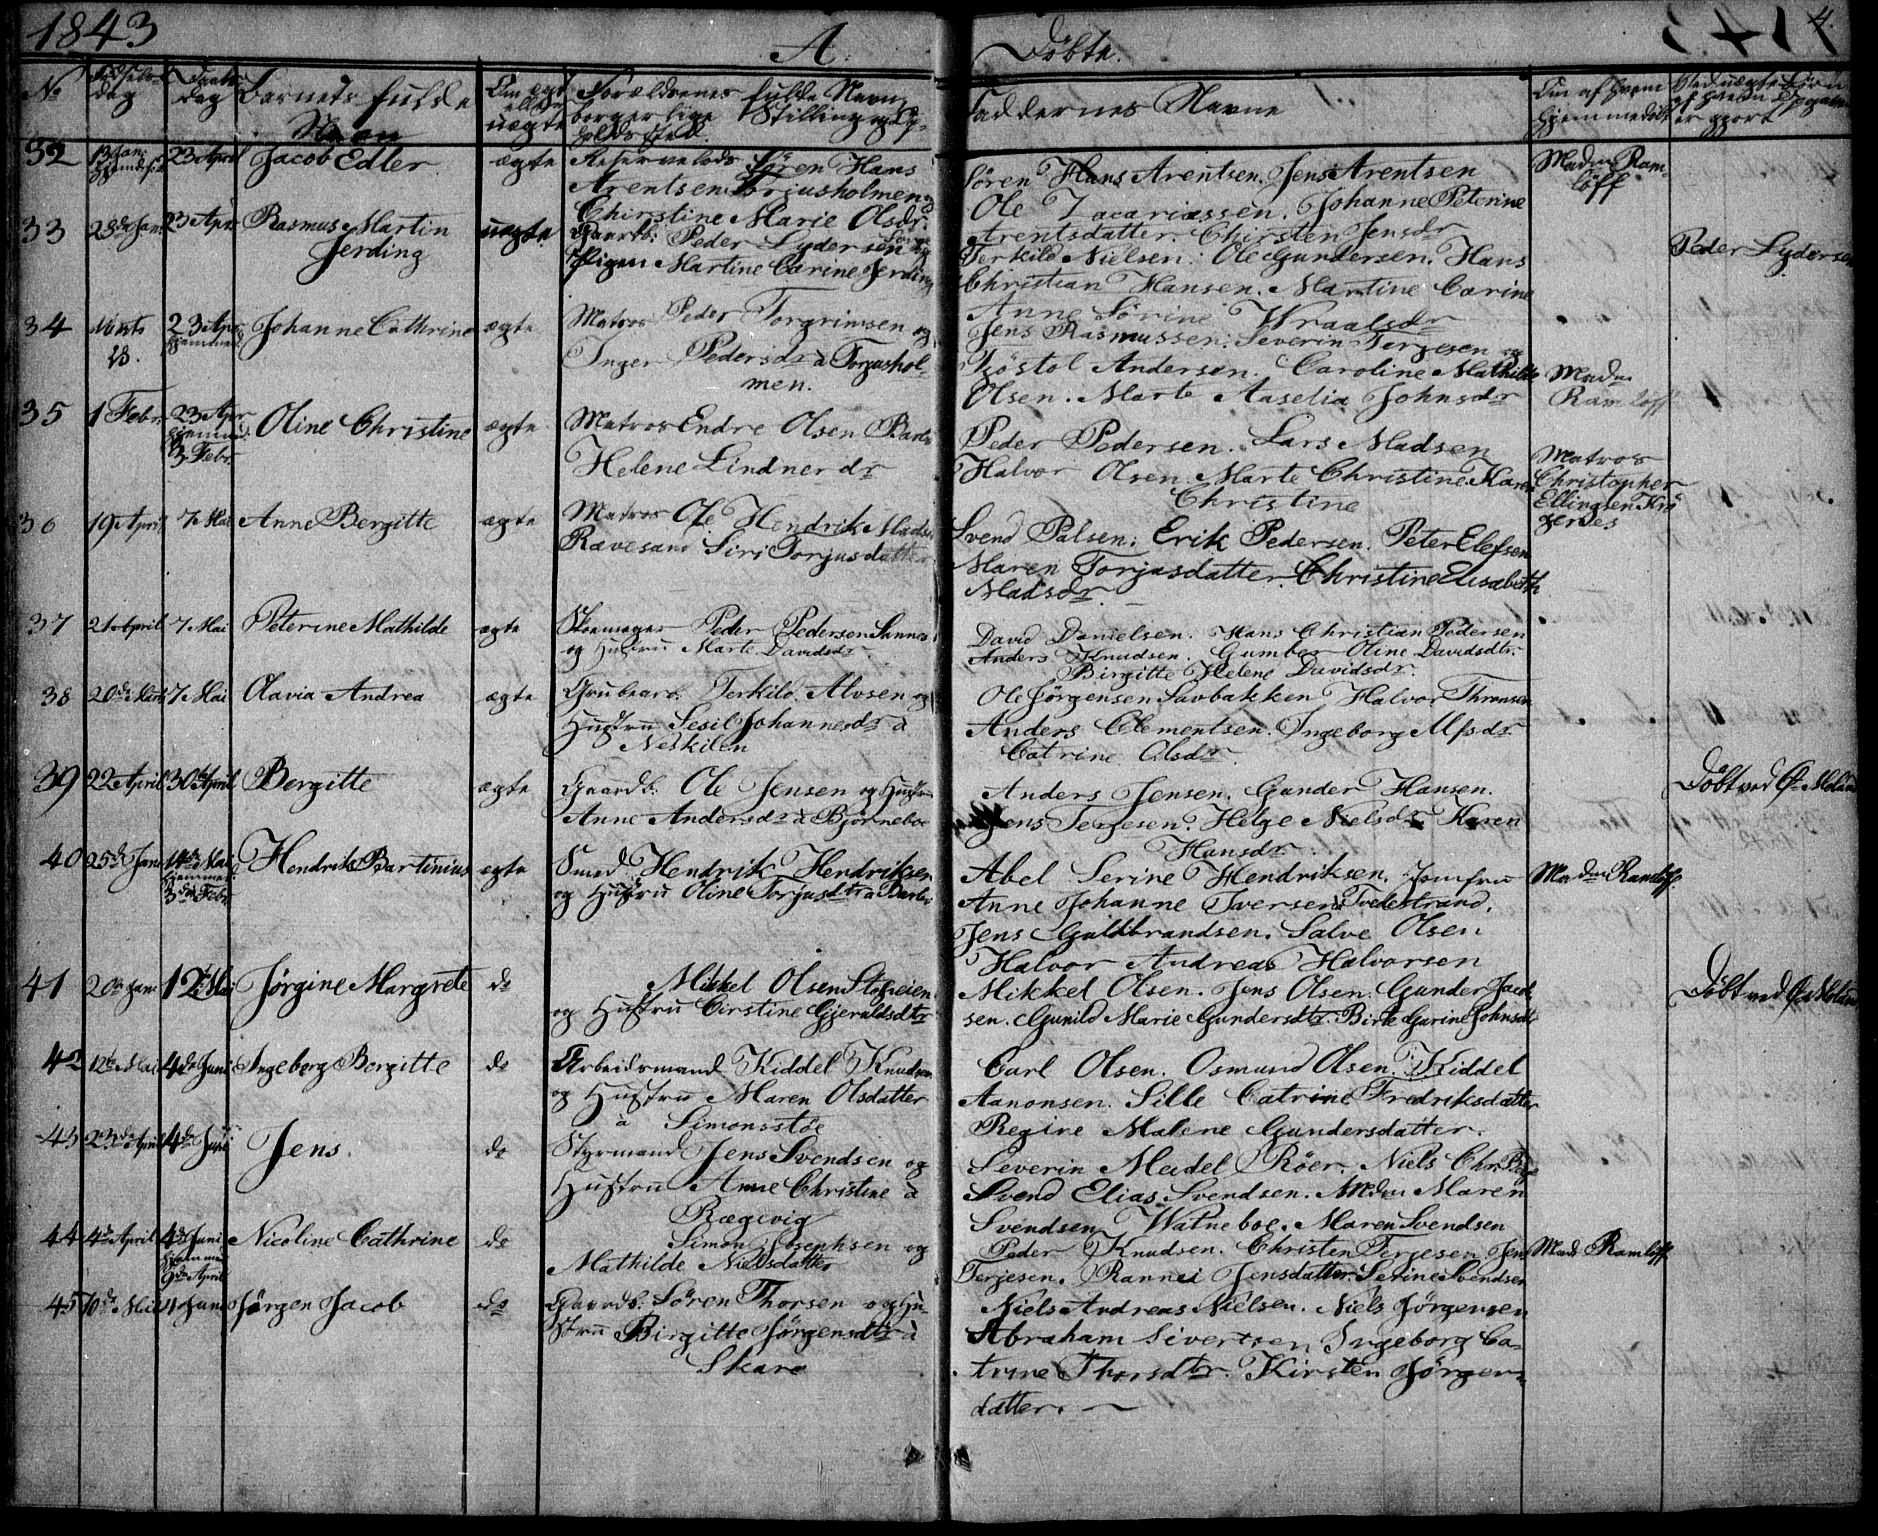 1843
A.
Döbte.
4.
No
Födsels-
dag
Daabs
dag
Barnets fulde
Navn
Om ægte
eller
uægte
Forældrenes fulde Navn,
borgerlige Stilling og Op-
holdssted.
Faddernes Navne
Om af hvem
hjemmedöbt
Ved uægte Börn
af hvem Opgaven
er gjort
32 13 Jan. 23 April Jacob Edler ægte Reservelods Sören Hans
Arentsen Torjusholmen og
Chirstine Marie Olsdr.
Sören Hans Arentsen. Jens Arentsen
Ole Zacariassen. Johanne Peterine
Arentsdatter. Chirsten Jensdr
Madm Ram-
löff
33 28de Jan. 23 Apr. Rasmus Martin
Jerding
uægte Gaardb. Peder Lydersen og
Pigen Martine Carine Jerding
Terkild Nielsen. Ole Gundersen. Hans
Christian Hansen. Martine Carine
Anne Sörine Wraalsdr
Peder Lydersen
34 Marts
18.
23 Apr.
hjemmed.
Johanne Cathrine ægte Matros Peder Torgrimsen og
Inger Pedersdr à Torjushol-
men.
Jens Rasmussen. Severin Terjesen og
Tjöstol Andersen. Caroline Mathilde
Olsen. Marte Aaselia Johnsdr
Madm
Ramlöff
35 1 Febr. 23 Apr
hjemmed.
3 Febr.
Oline Christine ægte Matros Endre Olsen Barbo
Helene Lindner dr
Peder Pedersen. Lars Madsen
Halvor Olsen. Marte Christine Karen
Christine
Matros
Christopher
Ellingsen Krö
gernes
36 19 April 7 Mai Anne Bergitte ægte Matros Ole Hendrik Mads.
Rævesand Siri Torjusdatter
Svend Palsen. Erik Pedersen. Peter Elefsen
Maren Torjusdatter. Christine Elisabeth
Madsdr.
37 21 April 7 Mai Peterine Mathilde ægte Skoemager Peder Pedersen Sannes
og Hustru Marte Davidsdr.
David Danielsen. Hans Christian Pedersen
Anders Knudsen. Gumber Oline Davidsdtr.
Birgitte Helene Davidsdr.
38 20de Marts 7 Mai Olavia Andrea ægte Grubearb. Terkild Alvsen og
Hustru Sesil Johannesdr à
Neskilen
Ole Jörgensen Savbakken Halvor Thronsen
Anders Clementsen. Ingeborg Ulfsdr
Catrine Olsdr.
39 22 April 30te April Bergitte ægte Gaardb. Ole Jensen og Hustru
Anne Andersdr à Bjørneboe
Anders Jensen. Gunder Hansen.
Jens Terjesen. Helge Nielsdr Karen
Hansdr.
Döbt ved Ø. Moland
40 25de Jan. 14de Mai
hjemmed.
3de Febr.
Hendrik Bartinius ægte Smed Hendrik Hendriksen
og Hustru Oline Torjusdtr à Barbo
Abel Serine Hendriksen. Jomfru
Anne Johanne Iversen Tvedestrand.
Jens Guldbrandsen. Salve Olsen
Halvor Andreas Halvorsen
Madm Ramlöff
41 20de Jan. 12te Mai Jørgine Margrete do Mikkel Olsen Stofreien
og Hustru Cirstine Gjeruldsdtr
Mikkel Olsen. Jens Olsen. Gunder Jacob
sen. Gunild Marie Gundersdtr. Birte Gurine Johnsdtr
Döbt ved Ø. Moland
42 12te Mai 4de Juni Ingeborg Bergitte do Arbeidsmand Kiddel Knudsen
og Hustru Maren Olsdatter
à Simonsstöe
Carl Olsen. Osmund Olsen. Kiddel
Aanonsen. Sille Catrine Fredriksdatter
Regine Malene Gundersdatter.
43 23de April 4de Juni Jens. do Styrmand Jens Svendsen og
Hustru Anne Christine à
Rægevig
Severin Medel Röer. Niels Chr.
Svend Elias Svendsen. Madm Maren
Svendsen Watneboe. Maren Svendsen
44 4de April 4de Juni
hjemmed.
9de April
Nicoline Cathrine do Simon Josephsen og
Mathilde Nielsdatter
Peder Knudsen. Christen Terjesen. Jens
Terjesen. Rannei Jensdatter. Serine Svendsen
Mad Ramlöff
45 10de Mai Juni Jörgen Jacob do Gaardb. Sören Thorsen og Hu-
stru Birgitte Jörgensdtr à
Skare
Niels Andreas Nielsen. Niels Jörgensen
Abraham Sivertsen Ingeborg Ca-
trine Thorsdtr. Kirsten Jörgens-
datter.